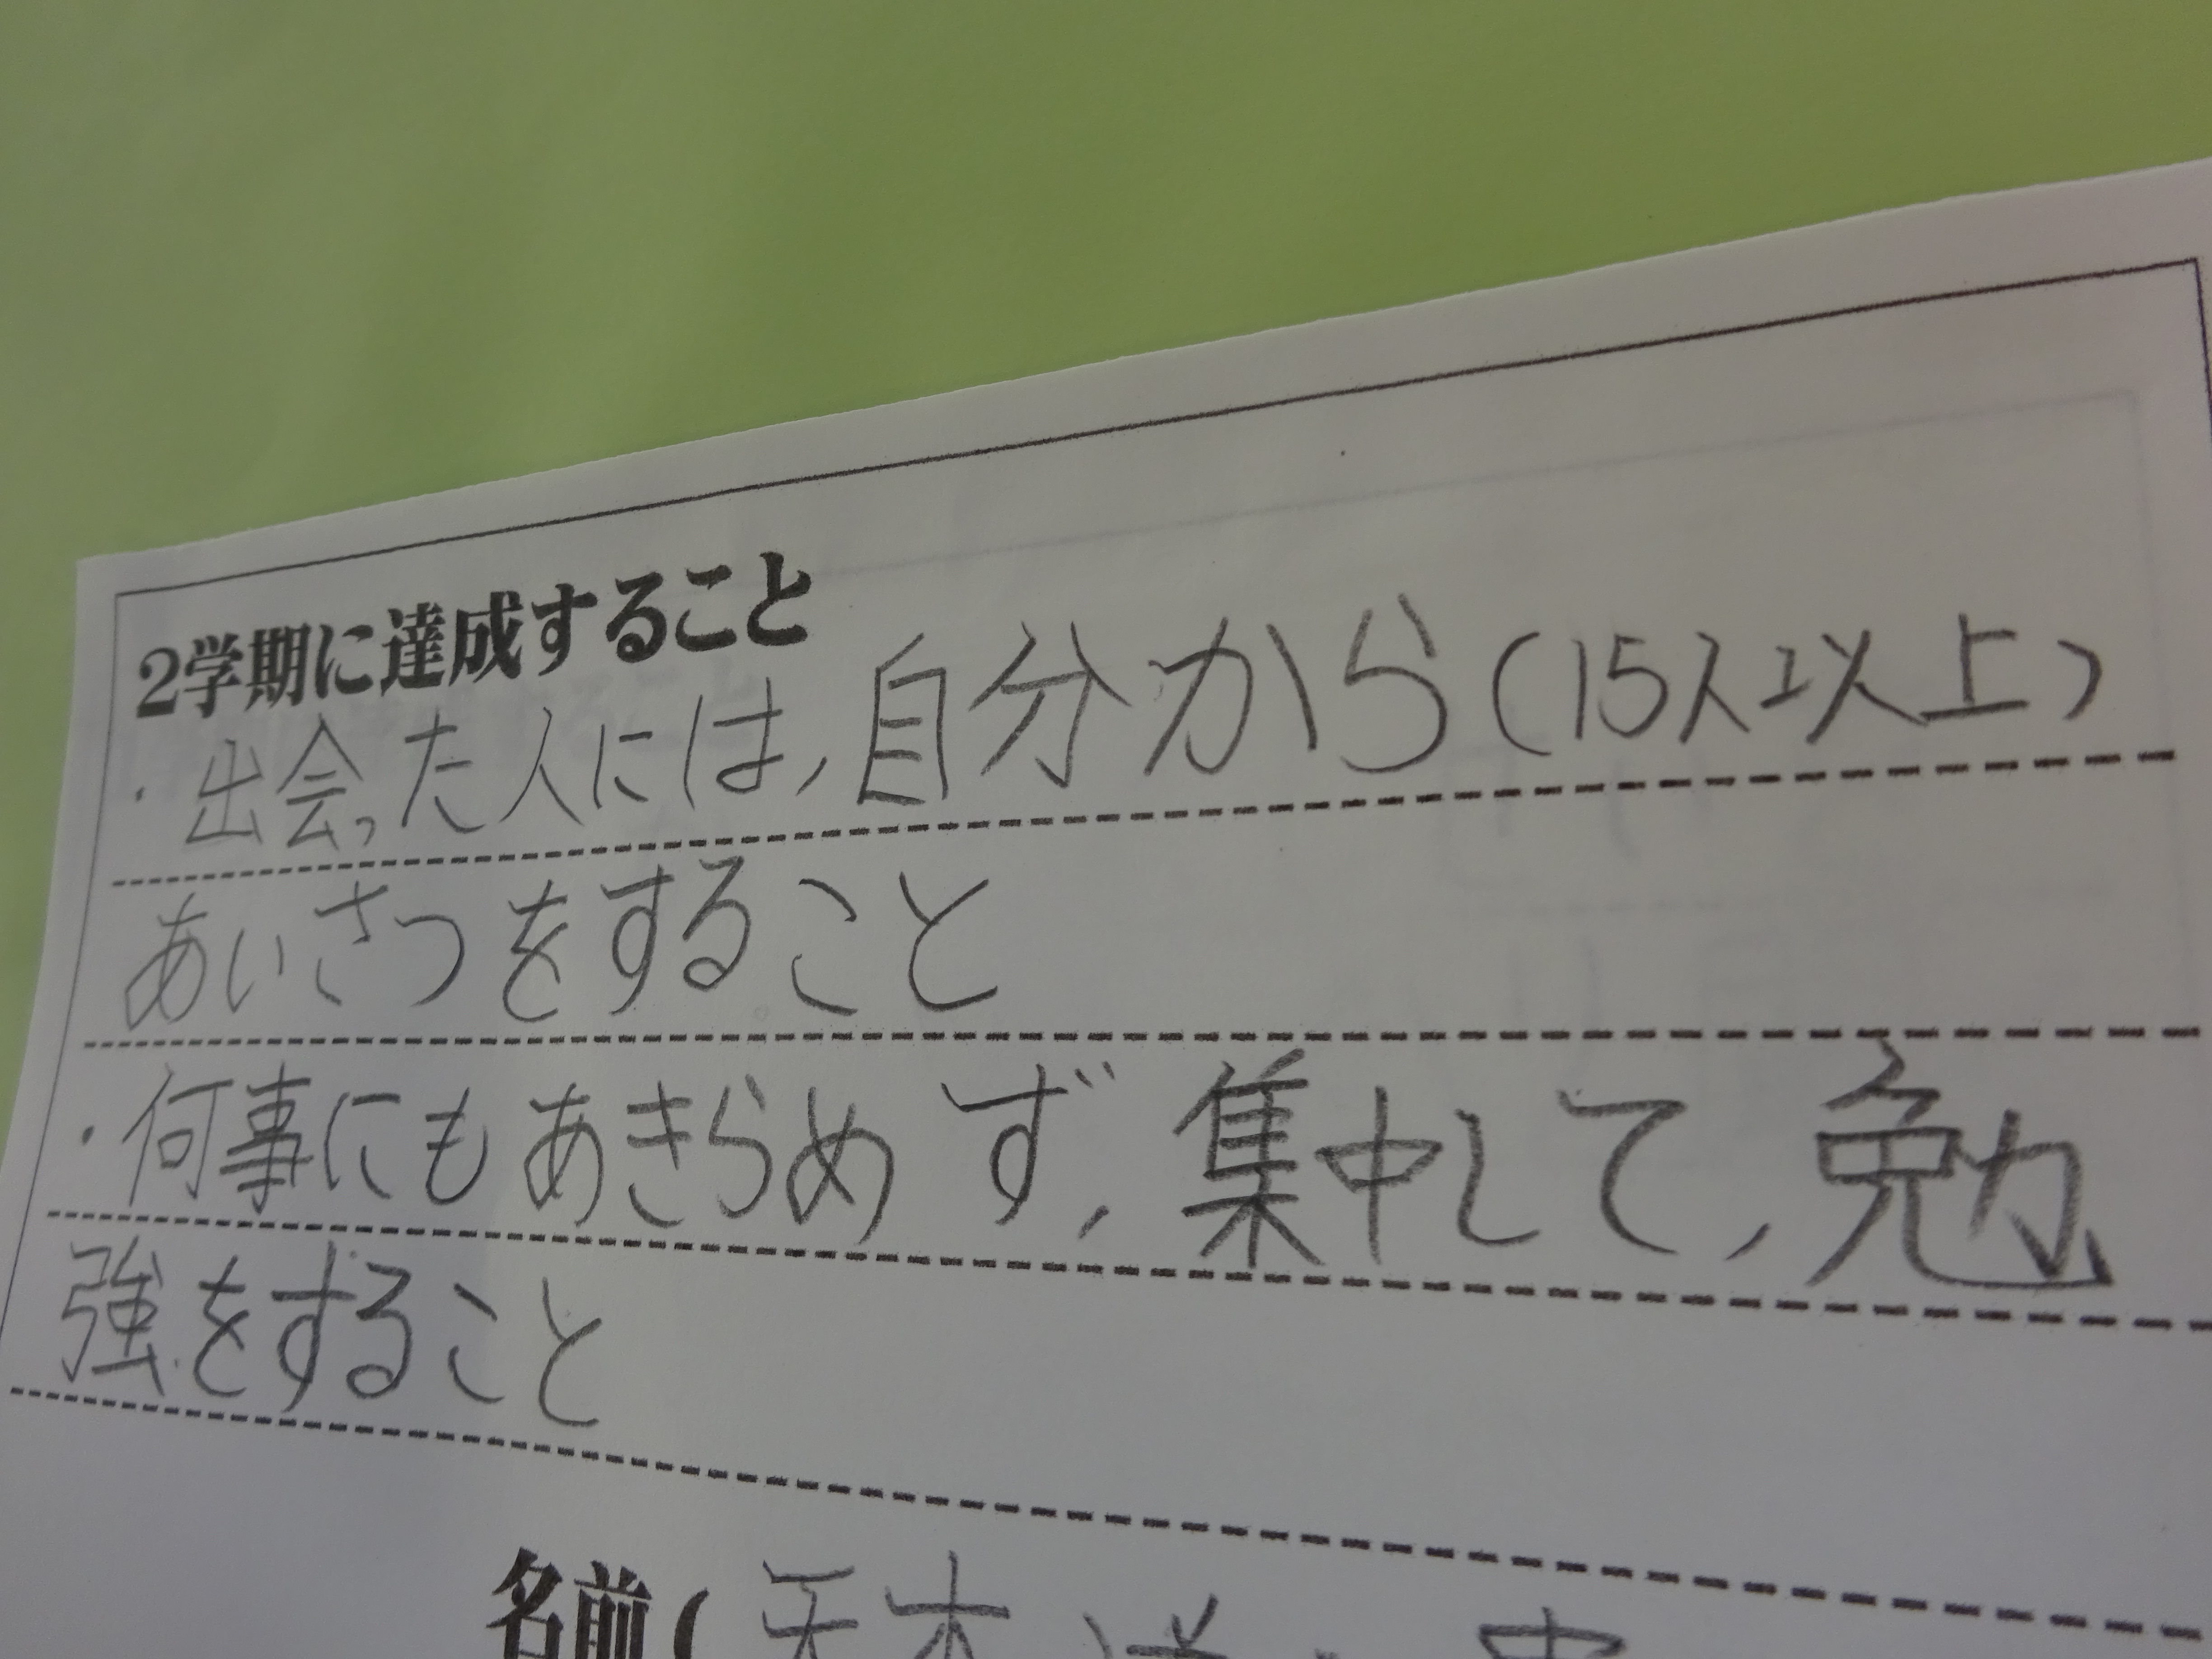 2学期に達成すること
・出会った人には,自分から(15人以上)
あいさつをすること
・何事にもあきらめず,集中して,勉
強をすること
名前(